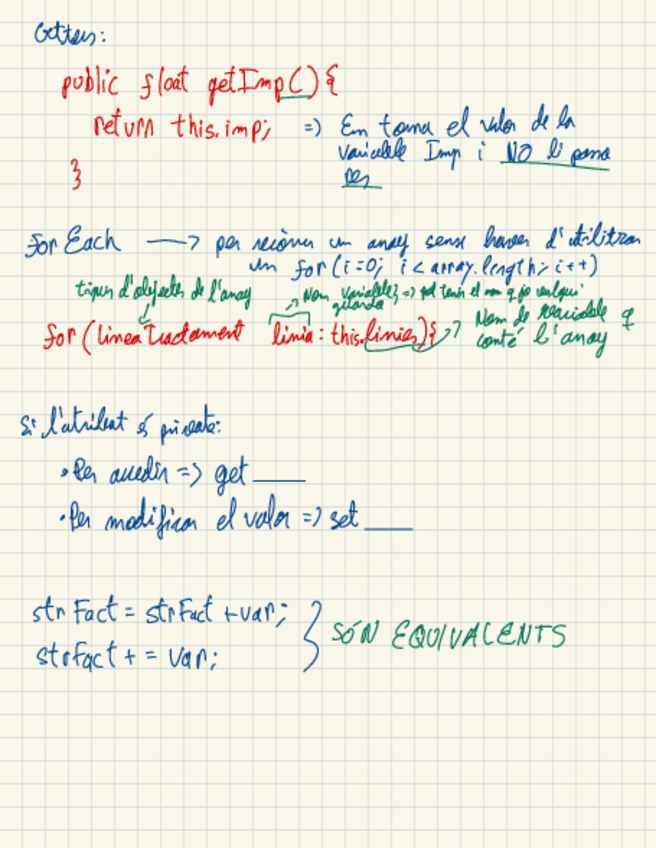 Getters:
public float getImp() {
return this.imp; => Em torna el valor de la
variable Imp i NO li passa
res
}
For Each → per recórrer un array sense haver d'utilitzar
un for (i=0; i < array.length; i++)
tipus d'objectes de l'array
Nom variable => pot tenir el nom q jo vulgui
guarda
for (lineaTractament linia : this.linies) {
Nom de variable q
conté l'array
Si l'atribut és private:
• Per accedir => get ____
• Per modificar el valor => set ____
strFact = strFact + var;
strFact += var;
SÓN EQUIVALENTS